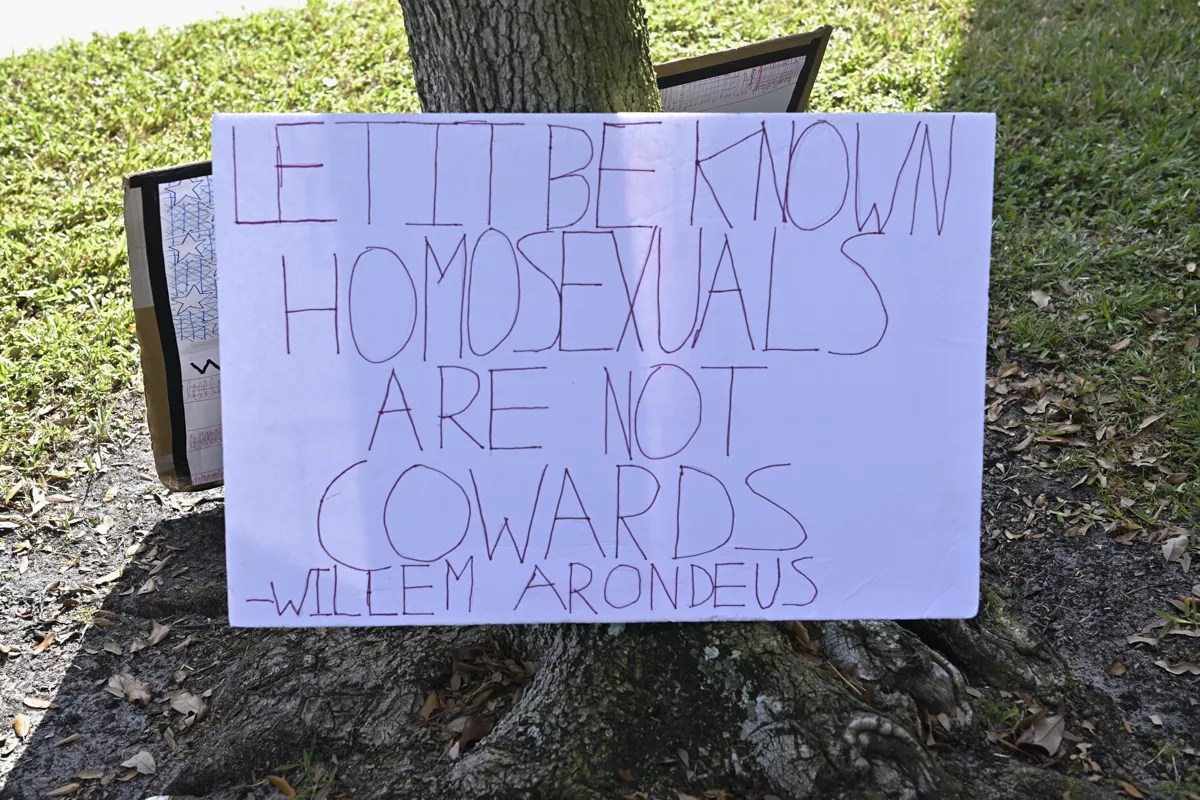 LET IT BE KNOWN
HOMOSEXUALS
ARE NOT
COWARDS
-WILLEM ARONDEUS